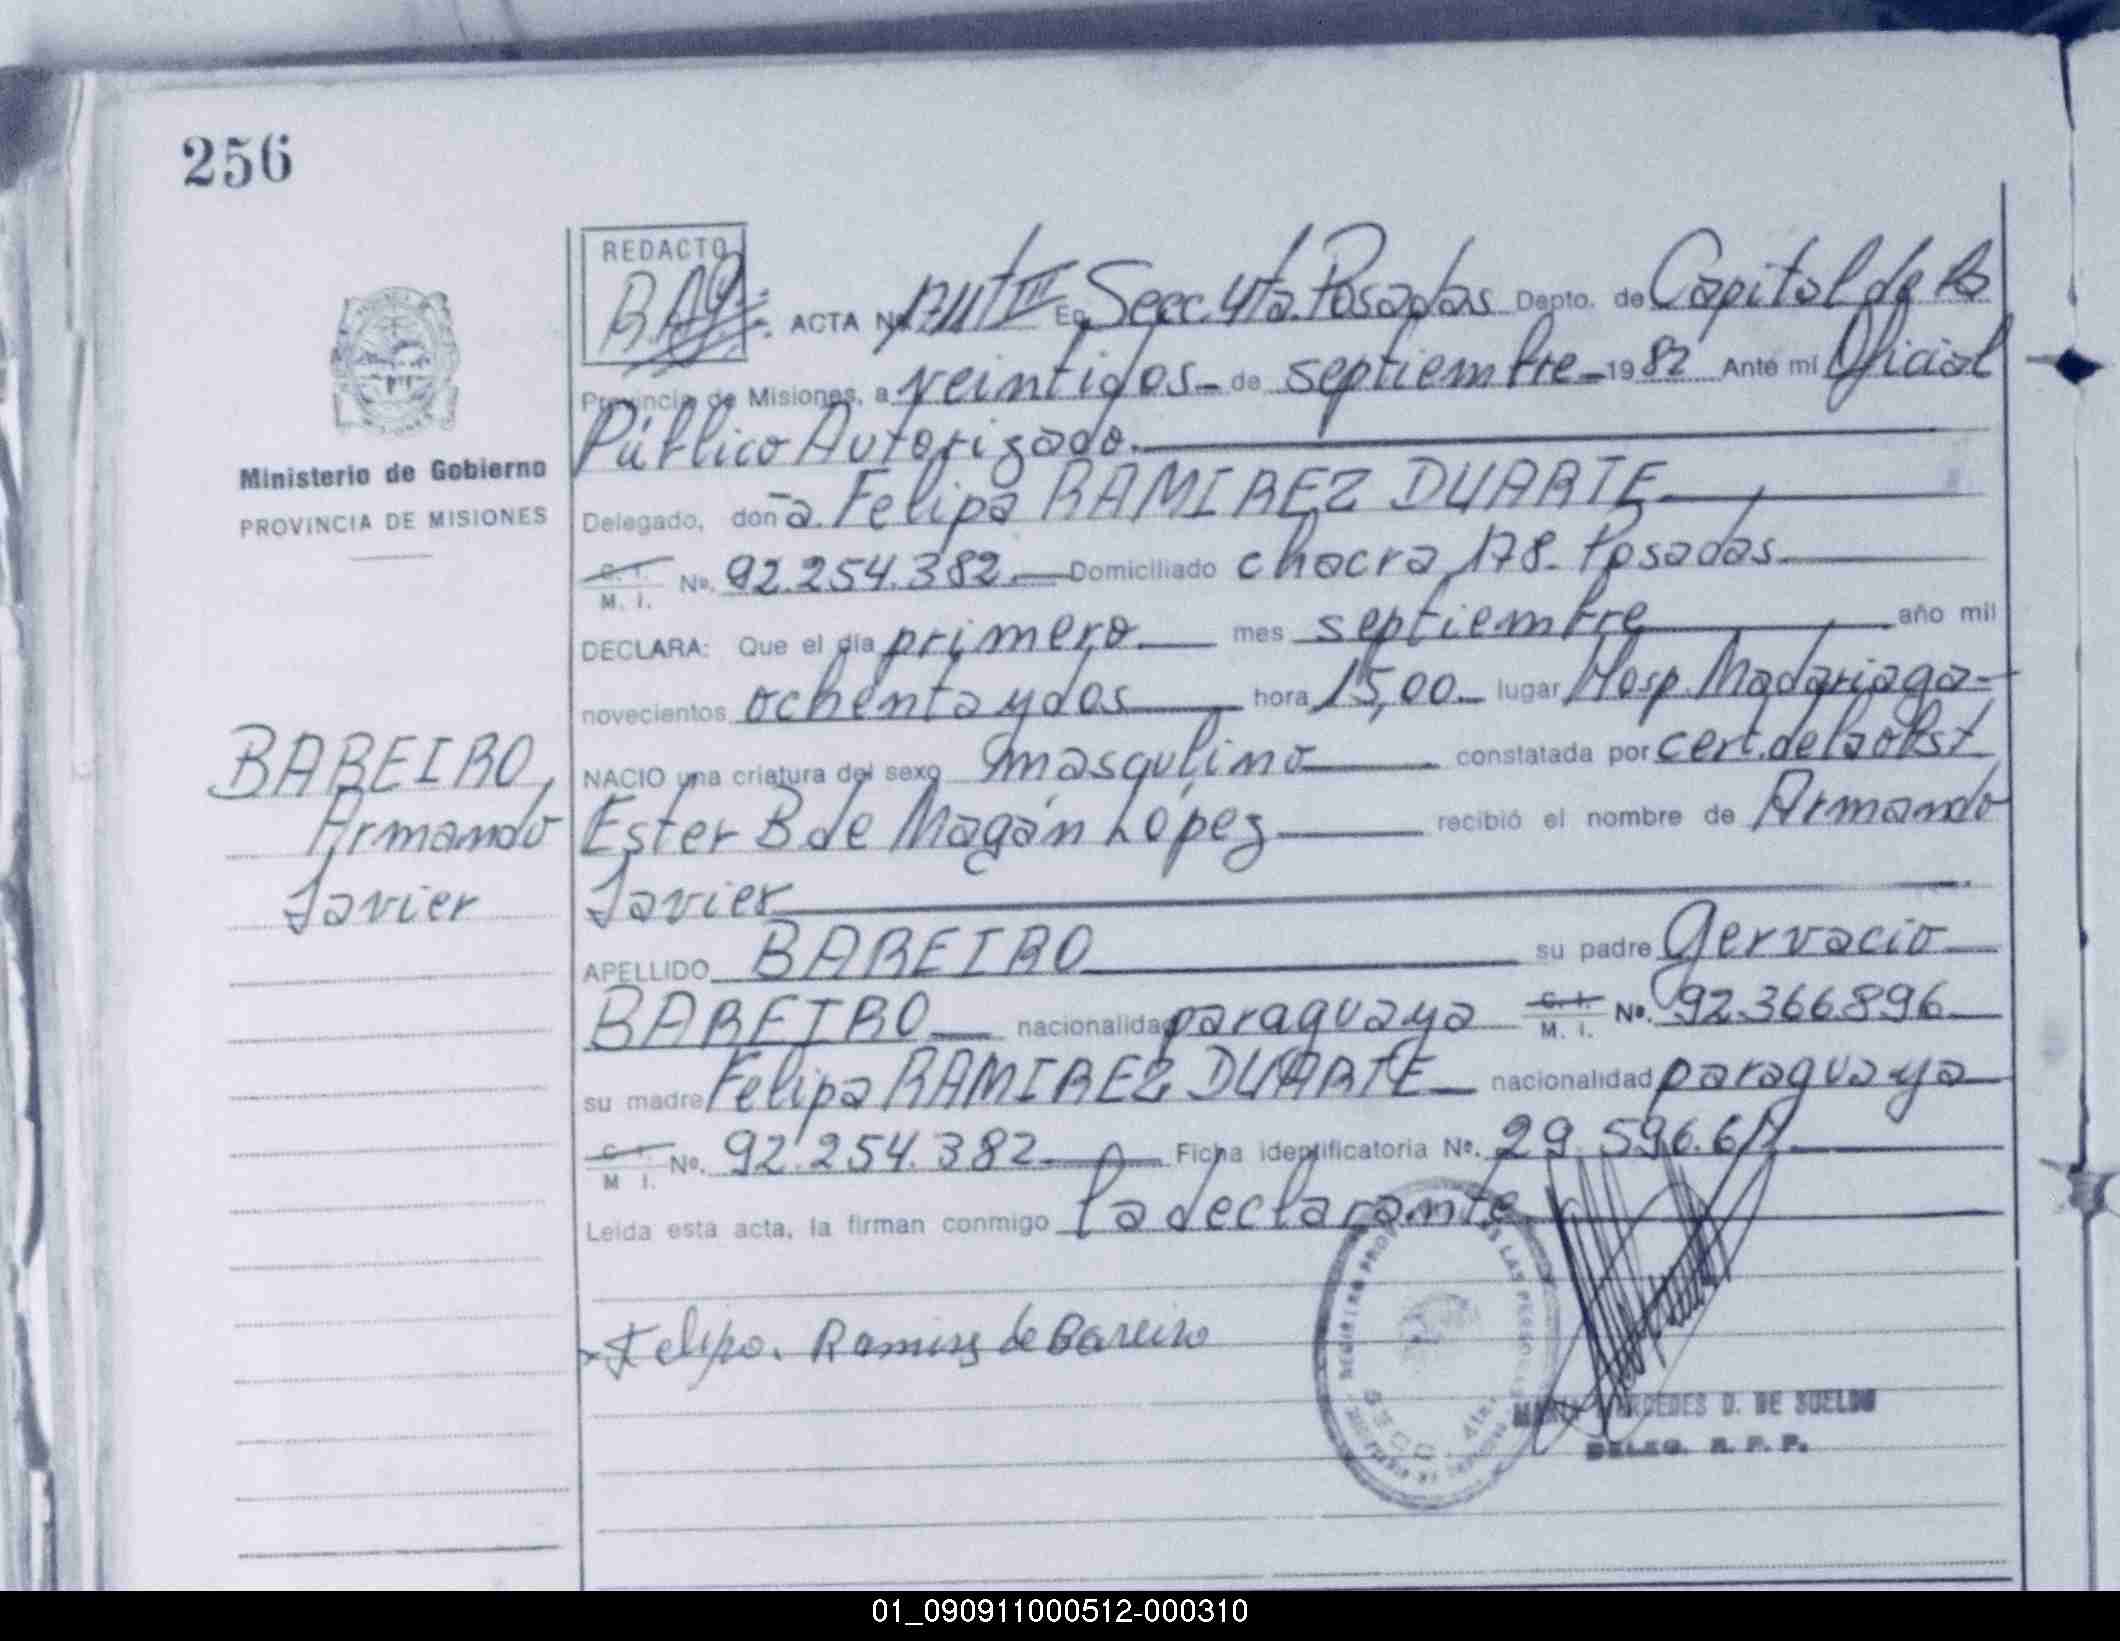 256
REDACTO
ACTA Nº En Secc. 4ta. Posadas Depto. de Capital de la
Provincia de Misiones, a veintidos de septiembre 1982 Ante mi Oficial
Público Autorizado.
Ministerio de Gobierno
PROVINCIA DE MISIONES
Delegado, doña Felipa RAMIREZ DUARTE
C. I.
M. I. Nº. 92.254.382. Domiciliado chacra 178. Posadas.
DECLARA: Que el día primero mes septiembre año mil
novecientos ochenta y dos hora 15,00. lugar Hosp. Madariaga
NACIO una criatura del sexo masculino constatada por cert. de la obst
BAREIRO,
Armando
Javier
Ester B de Magán López recibió el nombre de Armando
Javier
APELLIDO BAREIRO su padre Gervacio
BAREIRO nacionalidad paraguaya C. I. M. I. Nº. 92.366.896
su madre Felipa RAMIREZ DUARTE nacionalidad paraguaya
C. I.
M. I. Nº. 92.254.382 Ficha identificatoria Nº. 29.596.611
Leída esta acta, la firman conmigo la declarante
Felipa. Ramirez de Bareiro
MERCEDES D. DE SUELDO
DELEG. R. P. P.
01_090911000512-000310